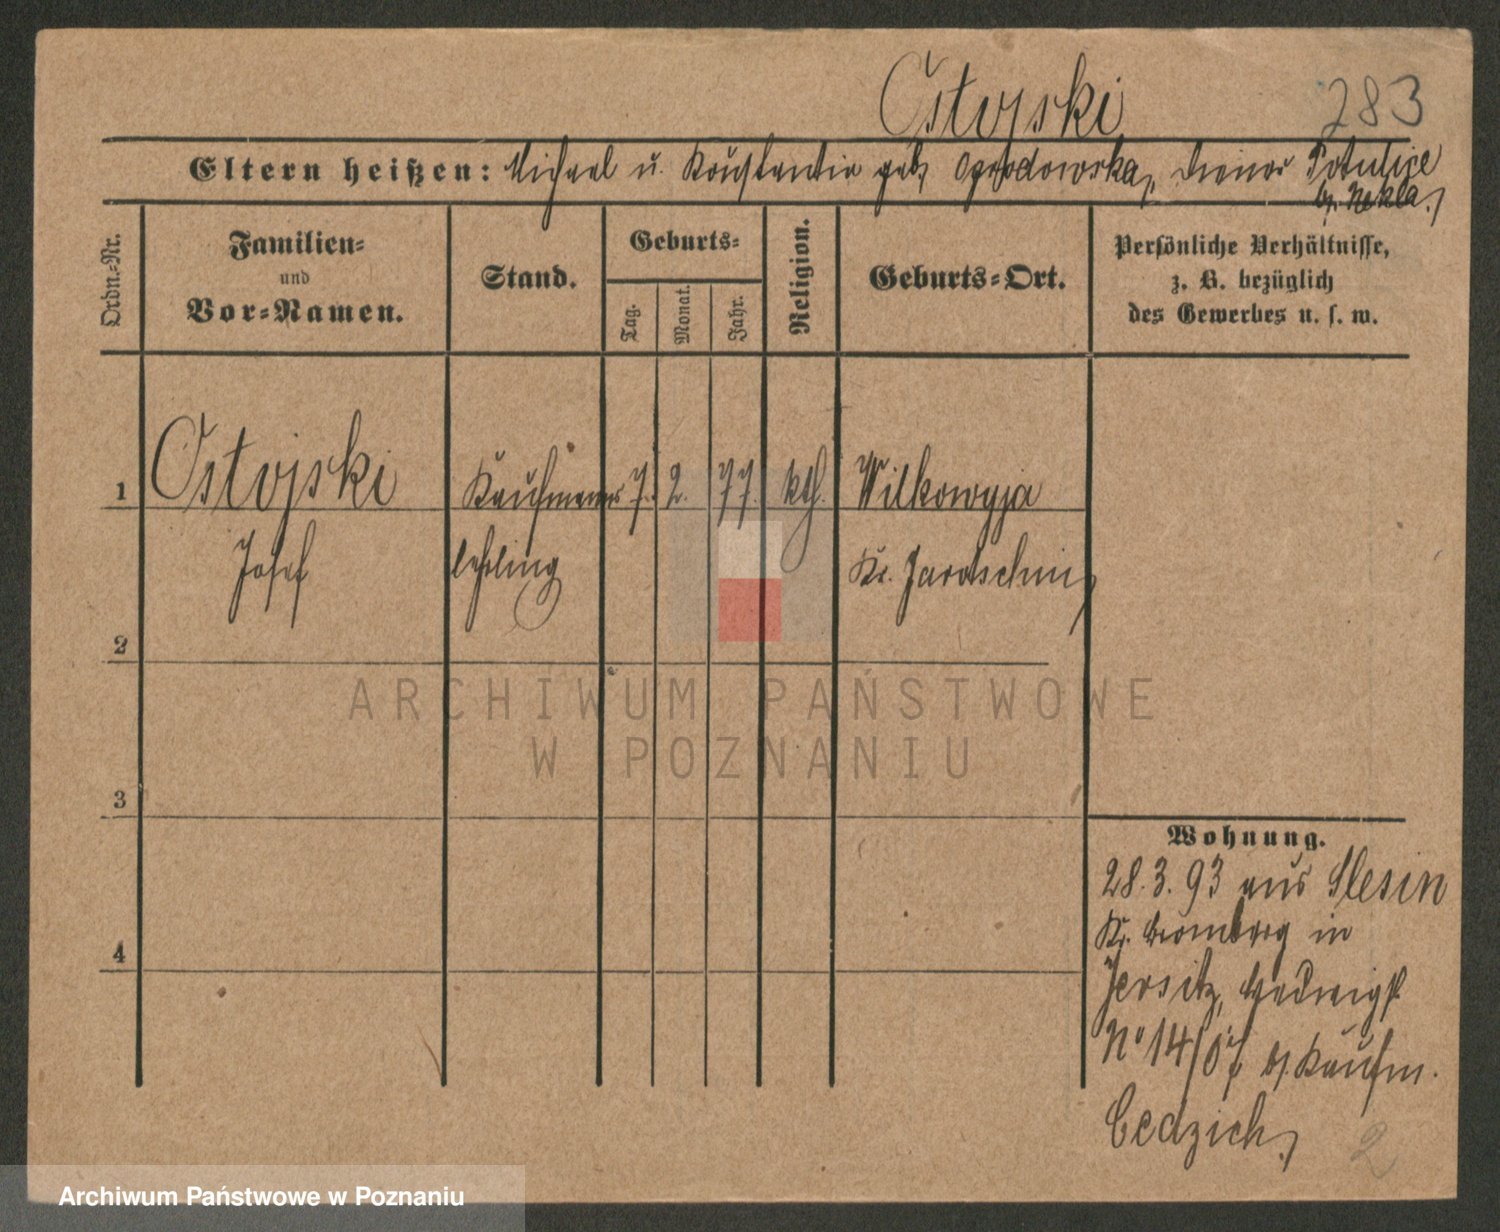 Ostojski 283
Eltern heißen: Michael u. Konstantia geb. Ogrodowska, Diener Potulice
b. Nekla.
Ordn.-Nr.
Familien-
und
Vor-Namen.
Stand.
Geburts-
Tag.
Monat.
Jahr.
Religion.
Geburts-Ort.
Persönliche Verhältnisse,
z. B. bezüglich
des Gewerbes u. s. w.
1 Ostojski Kaufmanns 7. 2. 77. kth. Wilkowyja
Josef lehrling Kr. Jarotschin
2
3
4
Wohnung.
28.3.93 aus Slesin
Kr. Bromberg in
Jersitz, Hedwigst
No 14/ b. Kaufm.
Cedzich
2
ARCHIWUM PAŃSTWOWE
W POZNANIU
Archiwum Państwowe w Poznaniu